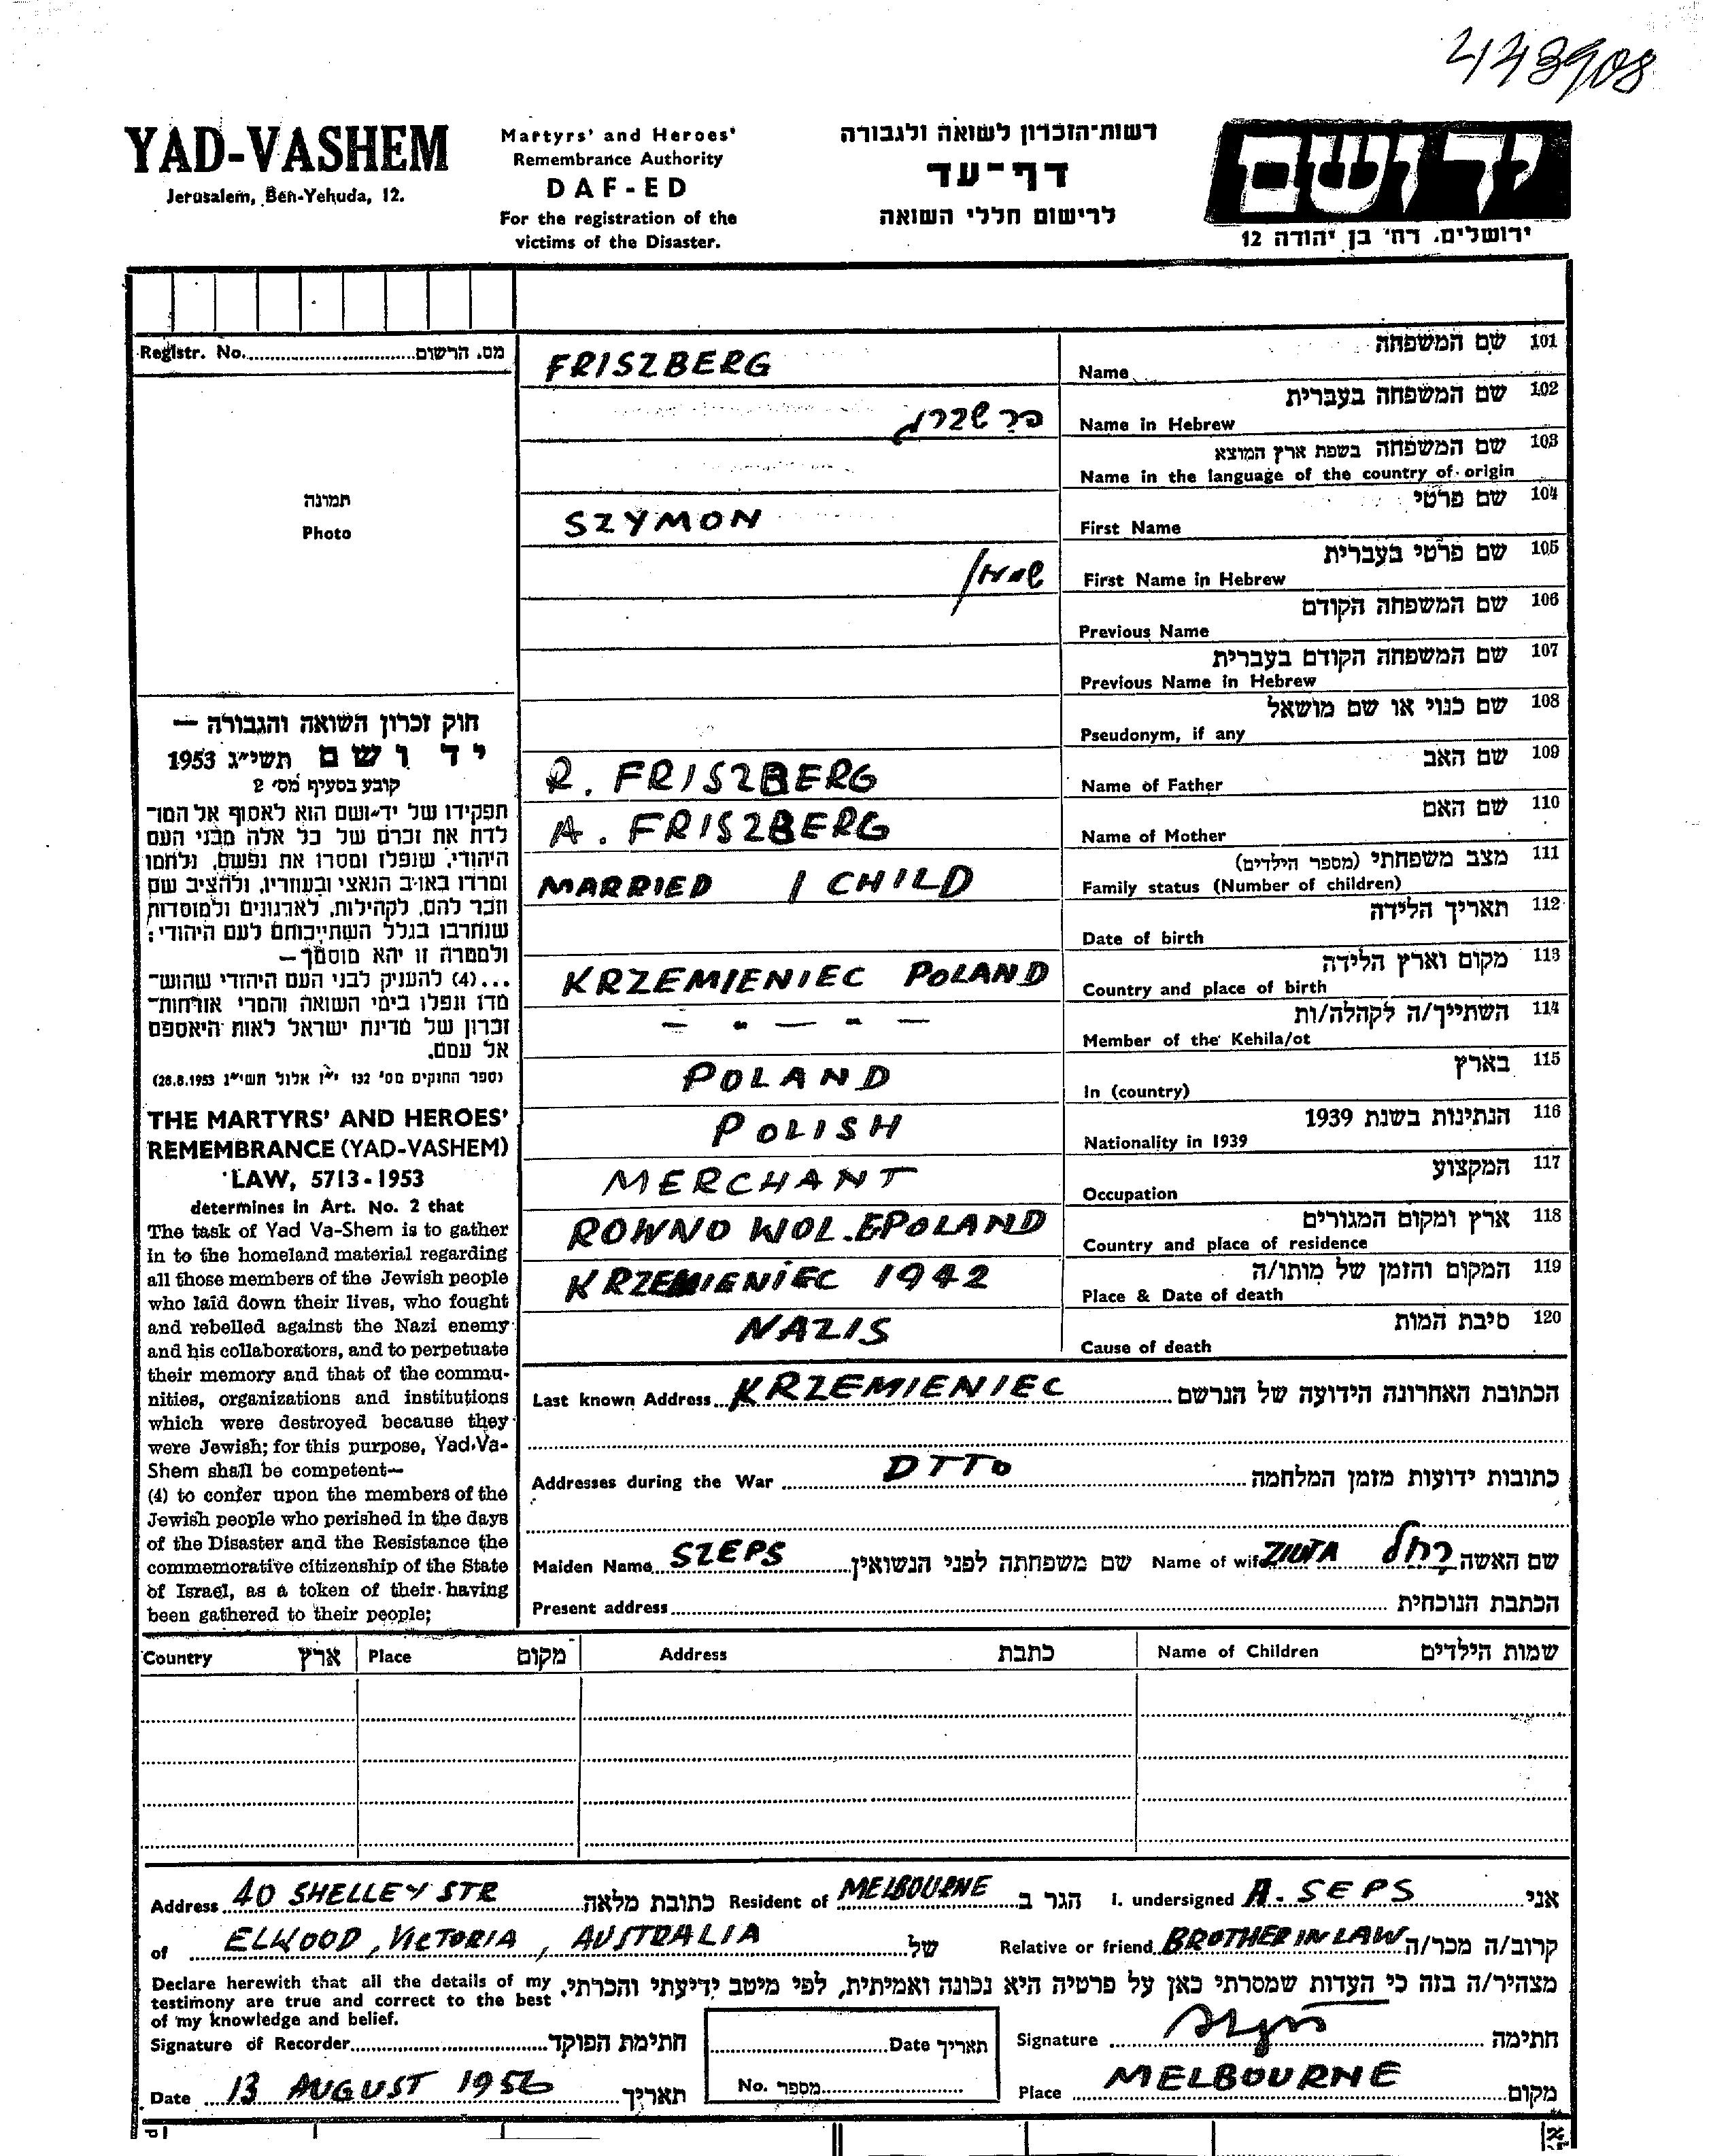 443908
YAD-VASHEM
Jerusalem, Ben-Yehuda, 12.
Martyrs' and Heroes'
Remembrance Authority
DAF-ED
For the registration of the
victims of the Disaster.
רשות־הזכרון לשואה ולגבורה
דף־עד
לרישום חללי השואה
יד ושם
ירושלים, רח' בן יהודה 12
Registr. No. מס. הרשום
תמונה
Photo
FRISZBERG Name שם המשפחה 101
Name in Hebrew שם המשפחה בעברית 102
Name in the language of the country of origin שם המשפחה בשפת ארץ המוצא 103
SZYMON First Name שם פרטי 104
שמעון First Name in Hebrew שם פרטי בעברית 105
Previous Name שם המשפחה הקודם 106
Previous Name in Hebrew שם המשפחה הקודם בעברית 107
Pseudonym, if any שם כנוי או שם מושאל 108
R. FRISZBERG Name of Father שם האב 109
A. FRISZBERG Name of Mother שם האם 110
MARRIED 1 CHILD Family status (Number of children) מצב משפחתי (מספר הילדים) 111
Date of birth תאריך הלידה 112
KRZEMIENIEC POLAND Country and place of birth מקום וארץ הלידה 113
- - - - - Member of the Kehila/ot השתייך/ה לקהלה/ות 114
POLAND In (country) בארץ 115
POLISH Nationality in 1939 הנתינות בשנת 1939 116
MERCHANT Occupation המקצוע 117
ROWNO WOL. POLAND Country and place of residence ארץ ומקום המגורים 118
KRZEMIENIEC 1942 Place & Date of death המקום והזמן של מותו/ה 119
NAZIS Cause of death סיבת המות 120
חוק זכרון השואה והגבורה —
יד ושם תשי״ג 1953
קובע בסעיף מס' 2
תפקידו של יד־ושם הוא לאסוף אל המו־
לדת את זכרם של כל אלה מבני העם
היהודי, שנפלו ומסרו את נפשם, נלחמו
ומרדו באויב הנאצי ובעוזריו, ולהציב שם
וזכר להם, לקהילות, לארגונים ולמוסדות
שנחרבו בגלל השתייכותם לעם היהודי;
ולמטרה זו יהא מוסמך—
...(4) להעניק לבני העם היהודי שהוש־
מדו ונפלו בימי השואה והמרי אזרחות־
זכרון של מדינת ישראל לאות היאספם
אל עמם.
(ספר החוקים מס' 132 י״ז אלול תשי״ג 28.8.1953)
THE MARTYRS' AND HEROES'
REMEMBRANCE (YAD-VASHEM)
LAW, 5713-1953
determines in Art. No. 2 that
The task of Yad Va-Shem is to gather
in to the homeland material regarding
all those members of the Jewish people
who laid down their lives, who fought
and rebelled against the Nazi enemy
and his collaborators, and to perpetuate
their memory and that of the commu-
nities, organizations and institutions
which were destroyed because they
were Jewish; for this purpose, Yad-Va-
Shem shall be competent—
(4) to confer upon the members of the
Jewish people who perished in the days
of the Disaster and the Resistance the
commemorative citizenship of the State
of Israel, as a token of their having
been gathered to their people;
Last known Address KRZEMIENIEC הכתובת האחרונה הידועה של הנרשם
Addresses during the War DTTO כתובות ידועות מזמן המלחמה
Maiden Name SZEPS שם משפחתה לפני הנשואין Name of wife ZIUTA רחל שם האשה
Present address הכתבת הנוכחית
Country ארץ Place מקום Address כתבת Name of Children שמות הילדים
Address 40 SHELLEY STR כתובת מלאה Resident of MELBOURNE הגר ב I. undersigned A. SEPS אני
of ELWOOD, VICTORIA, AUSTRALIA של Relative or friend BROTHER IN LAW קרוב/ה מכר/ה
Declare herewith that all the details of my
testimony are true and correct to the best
of my knowledge and belief.
מצהיר/ה בזה כי העדות שמסרתי כאן על פרטיה היא נכונה ואמיתית, לפי מיטב ידיעתי והכרתי.
Signature of Recorder חתימת הפוקד Date תאריך Signature חתימה
Date 13 AUGUST 1956 תאריך No. מספר Place MELBOURNE מקום